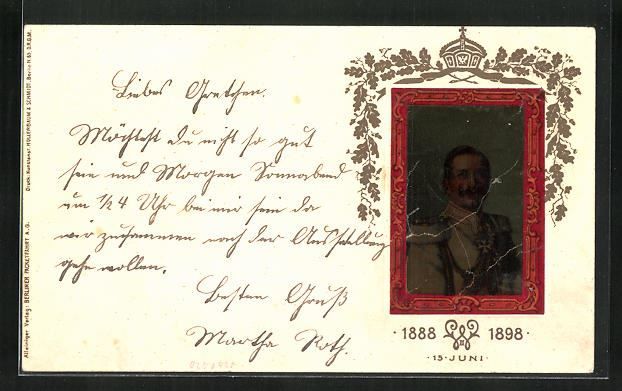 Liebes Gretchen.
Möchtest du nicht so gut
sein und Morgen Sonnabend
um ½4 Uhr bei mir sein da
wir zusammen nach der Ausstellung
gehe wollen.
Besten Gruß
Martha Roth.
1888 1898
15·JUNI
Alleiniger Verlag: BERLINER PACKETFAHRT A.G.
Druck: Kunstanst. HOLLERBAUM & SCHMIDT, Berlin N.65. D.R.G.M.